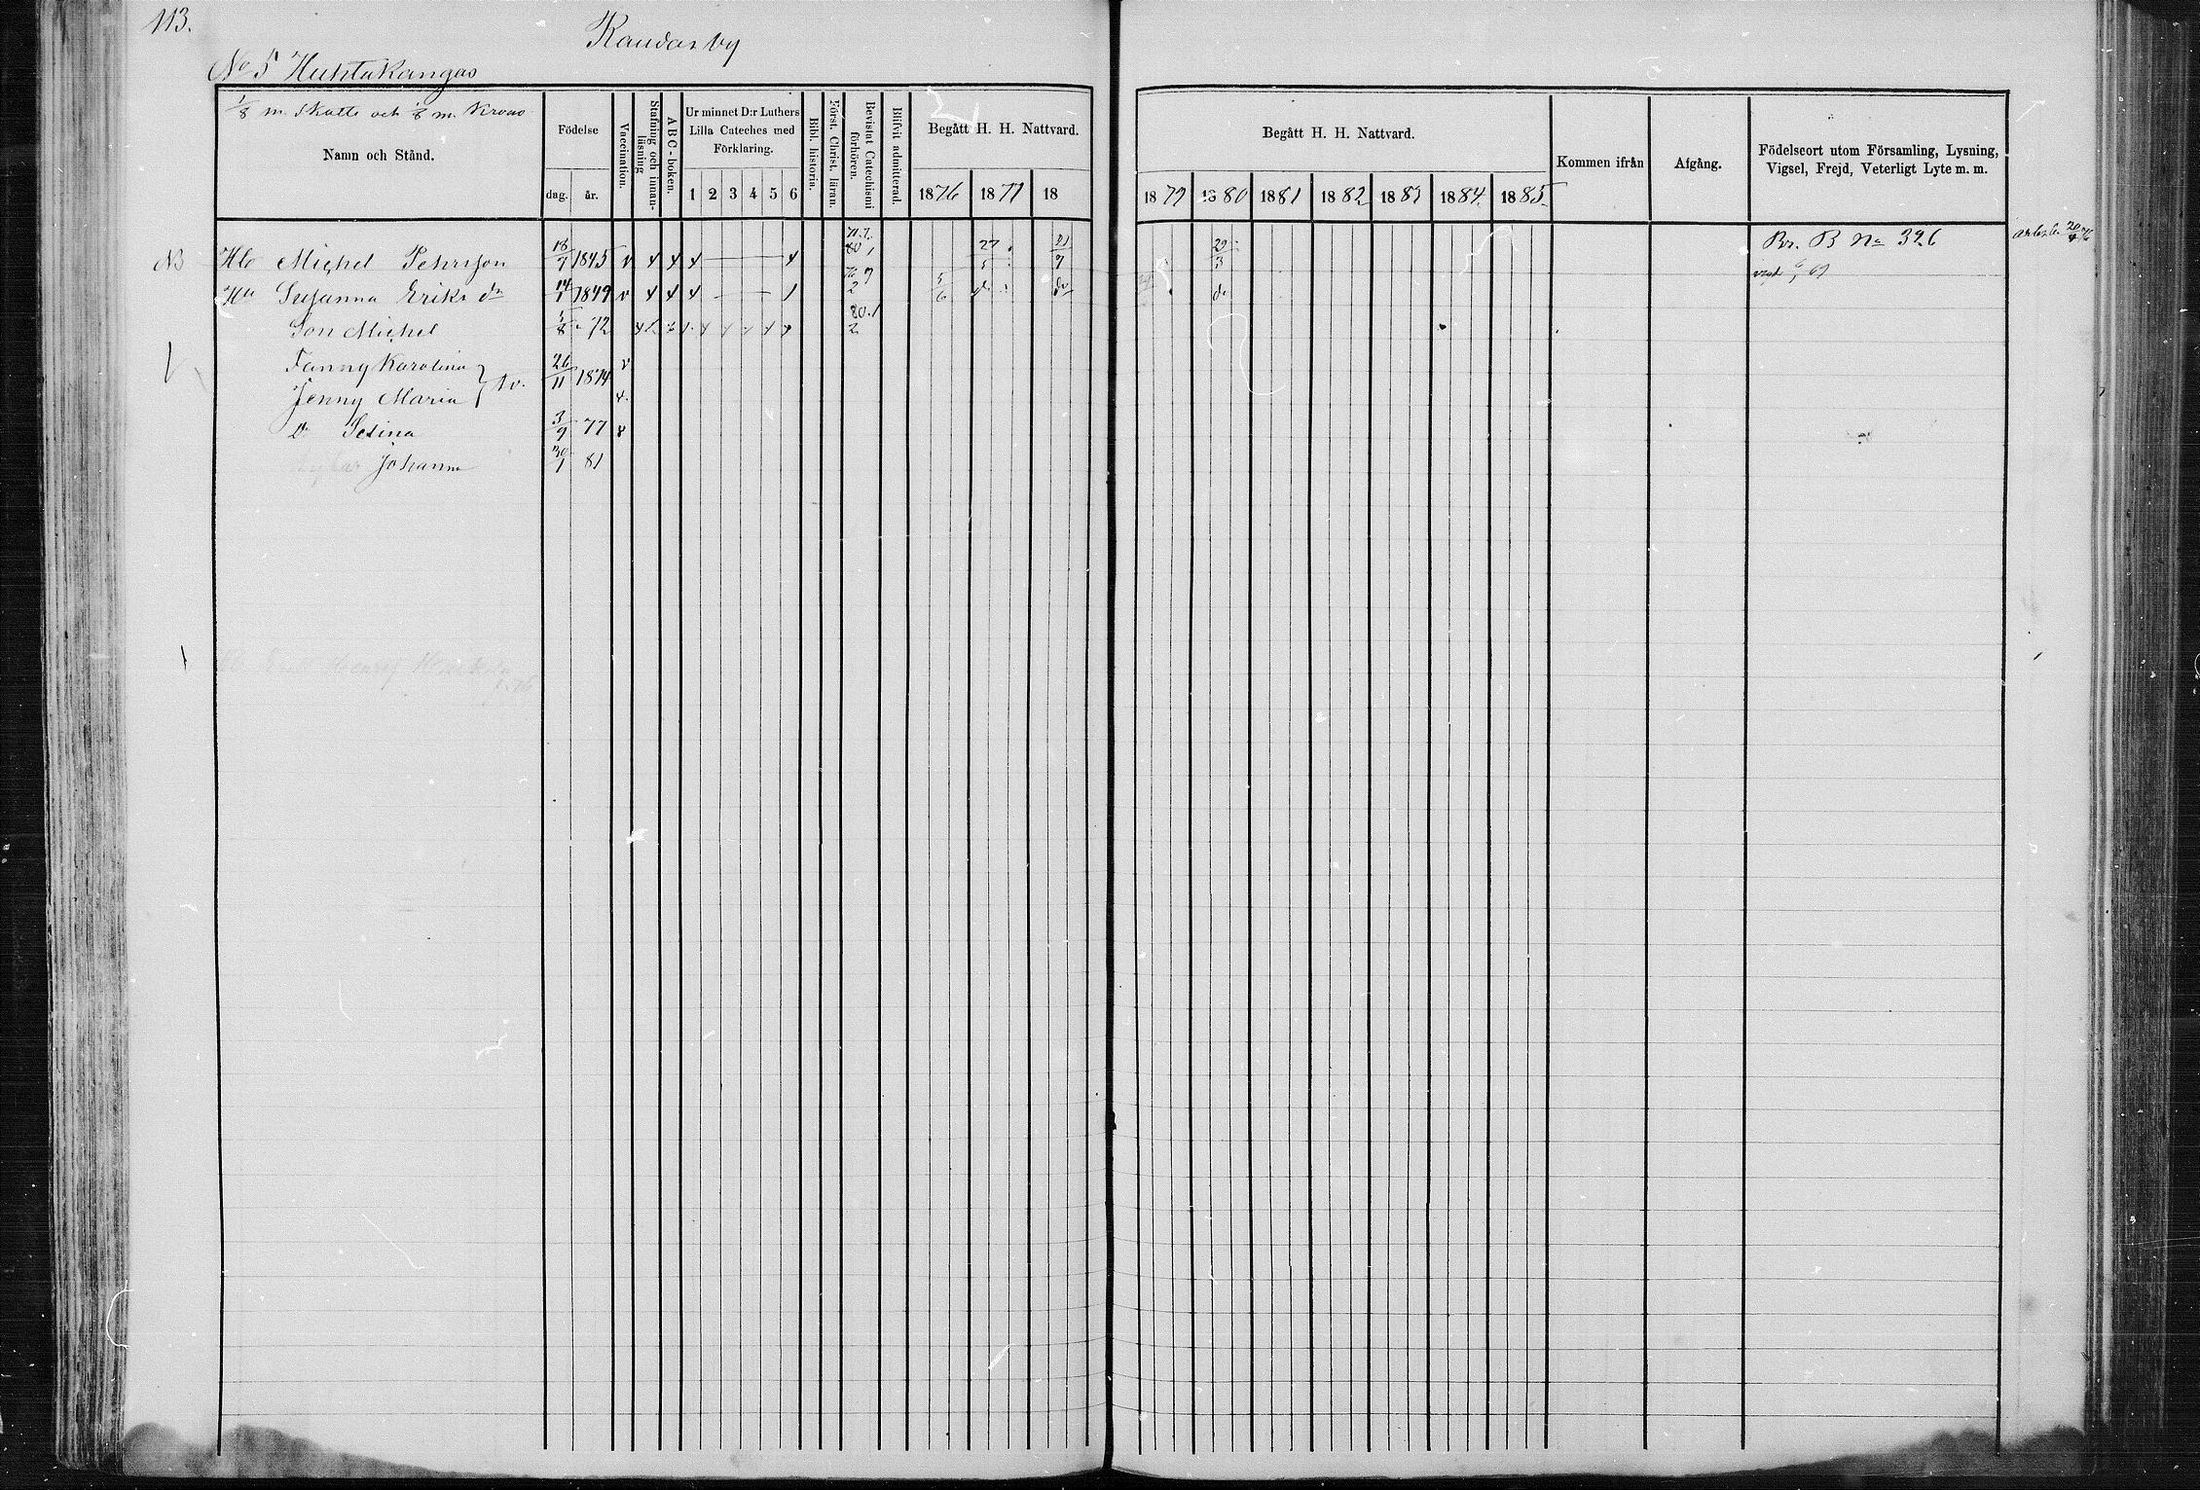 113.
Kaudas by
No 5 Huhtakangas
1/8 m. Skatte och 1/8 m. Krono
Namn och Stånd.
Födelse
dag. år.
Vaccination.
Stafning och innan-läsning
A B C-boken.
Ur minnet D:r Luthers Lilla Cateches med Förklaring.
1 2 3 4 5 6
Bibl. historia.
Först. Christ. läran.
Bevistat Catechismi förhören.
Blifvit admitterad.
Begått H. H. Nattvard.
1876 1877 18
Begått H. H. Nattvard.
1879 1880 1881 1882 1883 1884 1885
Kommen ifrån
Afgång.
Födelseort utom Församling, Lysning, Vigsel, Frejd, Veterligt Lyte m. m.
NB Hb Michel Pehrsson 18/7 1845 v 27/5 21/7 29/3 Br. B No 326
Hu Susanna Eriks dr 14/1 1849 v 5/6 do do do
Son Michel 5/8 72
Fanny Karolina 26/11 1874 v
Jenny Maria } tv.
D Selina 3/9 77
Johanna 30/1 81